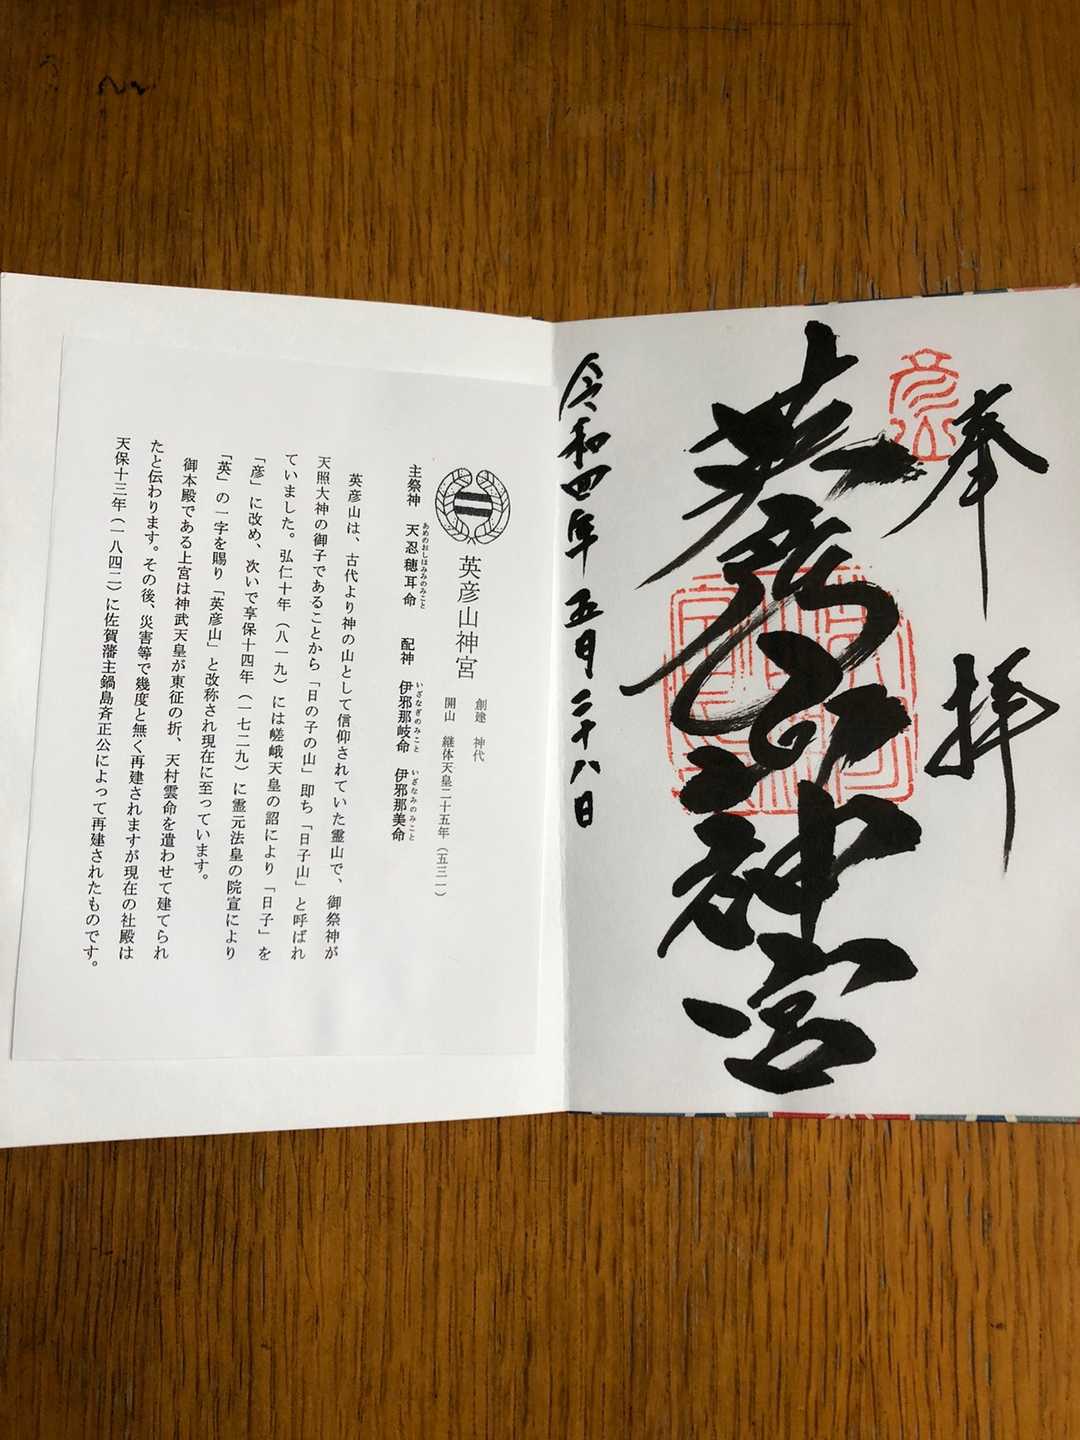 奉拝
英彦山神宮
令和四年五月二十八日
英彦山神宮
創建 神代
開山 継体天皇二十五年(五三一)
主祭神 天忍穂耳命 配神 伊邪那岐命 伊邪那美命
あめのおしほみみのみこと いざなぎのみこと いざなみのみこと
英彦山は、古代より神の山として信仰されていた霊山で、御祭神が
天照大神の御子であることから「日の子の山」即ち「日子山」と呼ばれ
ていました。弘仁十年(八一九)には嵯峨天皇の詔により「日子」を
「彦」に改め、次いで享保十四年(一七二九)に霊元法皇の院宣により
「英」の一字を賜り「英彦山」と改称され現在に至っています。
御本殿である上宮は神武天皇が東征の折、天村雲命を遣わせて建てられ
たと伝わります。その後、災害等で幾度と無く再建されますが現在の社殿は
天保十三年(一八四二)に佐賀藩主鍋島斉正公によって再建されたものです。